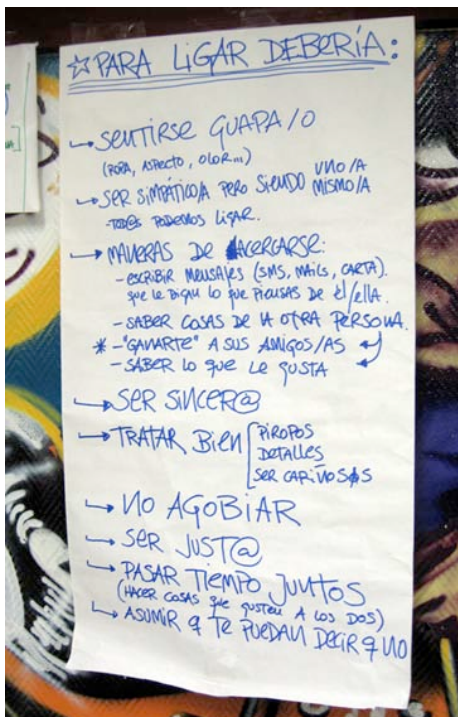 ☆ PARA LIGAR DEBERÍA:
→ SENTIRSE GUAPA/O
(ROPA, ASPECTO, OLOR...)
→ SER SIMPÁTICO/A PERO SIENDO UNO/A MISMO/A
- TOD@S PODEMOS LIGAR.
→ MANERAS DE ACERCARSE:
- ESCRIBIR MENSAJES (SMS, MAILS, CARTA).
QUE LE DIGAN LO QUE PIENSAS DE ÉL/ELLA.
- SABER COSAS DE LA OTRA PERSONA.
* - "GANARTE" A SUS AMIGOS/AS
- SABER LO QUE LE GUSTA
→ SER SINCER@
→ TRATAR BIEN [ PIROPOS
DETALLES
SER CARIÑOS@S
→ NO AGOBIAR
→ SER JUST@
→ PASAR TIEMPO JUNTOS
(HACER COSAS QUE GUSTEN A LOS DOS)
→ ASUMIR q TE PUEDAN DECIR q NO